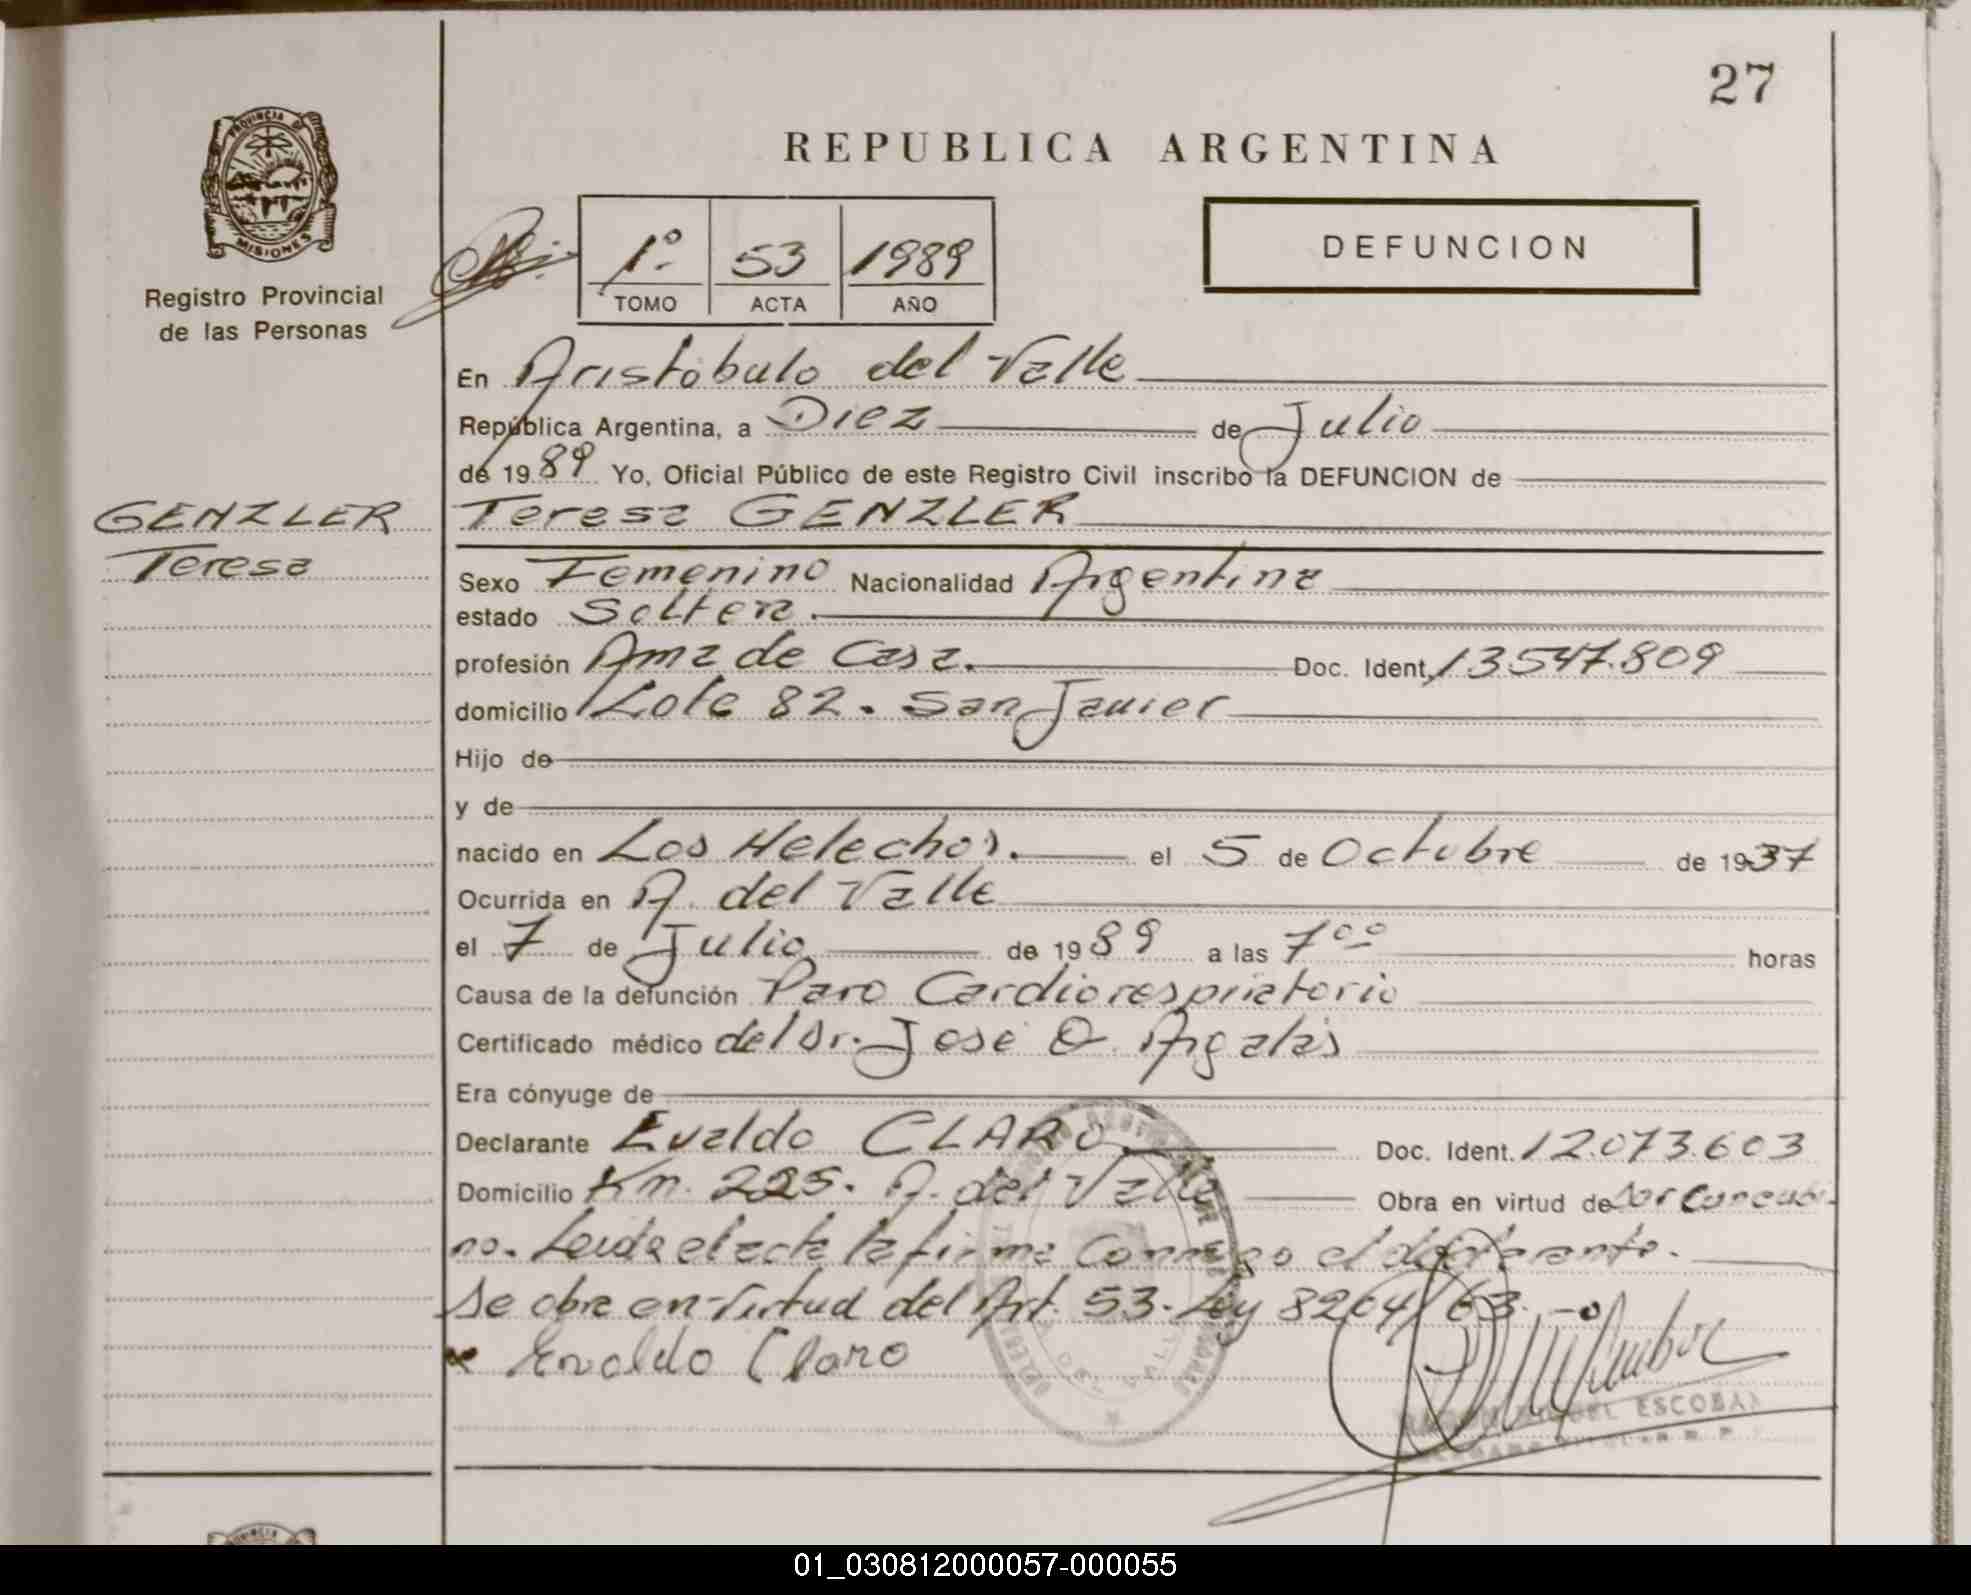 27
REPUBLICA ARGENTINA
PROVINCIA DE
MISIONES
Registro Provincial
de las Personas
1º 53 1989
TOMO ACTA AÑO
DEFUNCION
En Aristóbulo del Valle
República Argentina, a Diez de Julio
de 1989 Yo, Oficial Público de este Registro Civil inscribo la DEFUNCION de
GENZLER
Teresa
Teresa GENZLER
Sexo Femenino Nacionalidad Argentina
estado Soltera.
profesión Ama de Casa. Doc. Ident. 13547.809
domicilio Lote 82. San Javier
Hijo de
y de
nacido en Los Helechos. el 5 de Octubre de 1937
Ocurrida en A. del Valle
el 7 de Julio de 1989 a las 7⁰⁰ horas
Causa de la defunción Paro Cardiorespiratorio
Certificado médico del Dr. José O. Argalás
Era cónyuge de
Declarante Evaldo CLARO Doc. Ident. 12.073.603
Domicilio Km. 225. A. del Valle Obra en virtud de ser concubi-
no. Leida el acta la firma conmigo el declarante.
Se obra en virtud del Art. 53. Ley 8204/63.
x Evaldo Claro
MIGUEL ESCOBAR
PROVINCIA
01_030812000057-000055